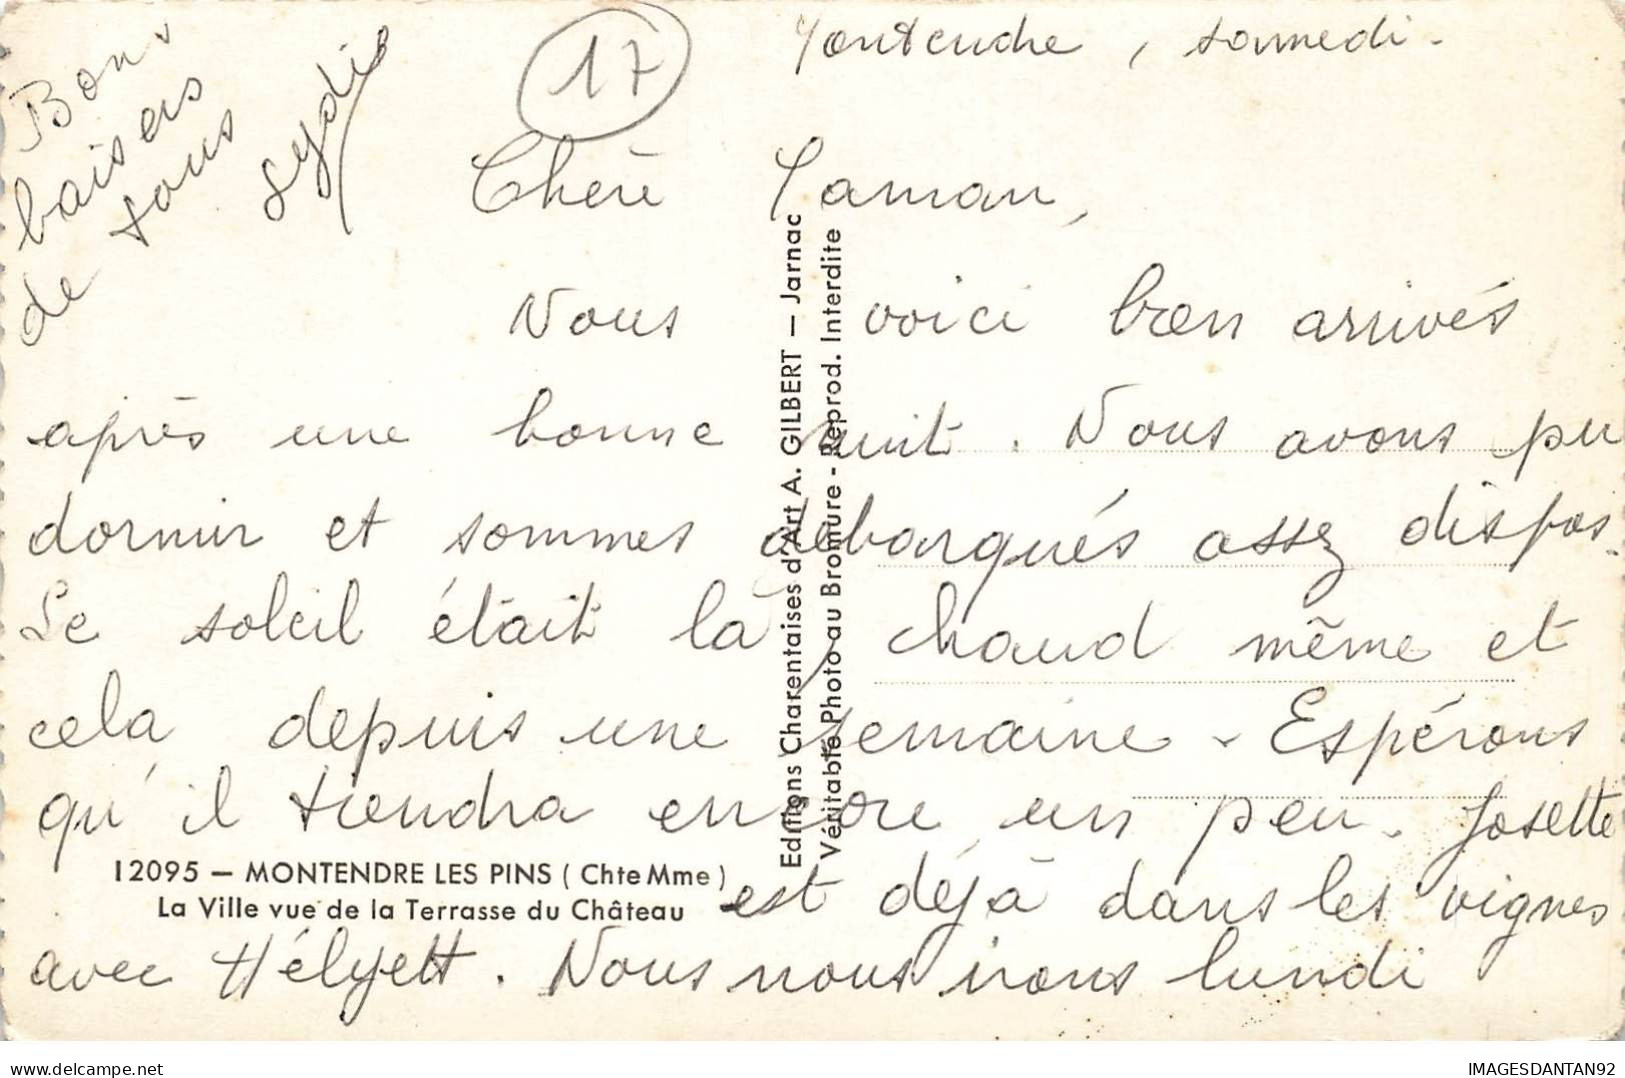 Montendre, samedi.
17
Bons
baisers
de tous
Chère Maman,
Nous voici bien arrivés
après une bonne nuit. Nous avons pu
dormir et sommes débarqués assez dispos.
Le soleil était là, chaud même et
cela depuis une semaine. Espérons
qu'il tiendra encore un peu. Josette
est déjà dans les vignes
avec Hélyett. Nous nous irons lundi
12095 — MONTENDRE LES PINS (Chte Mme)
La Ville vue de la Terrasse du Château
Editions Charentaises d'Art A. GILBERT — Jarnac
Véritable Photo au Bromure - Reprod. Interdite
IMAGESDANTAN92